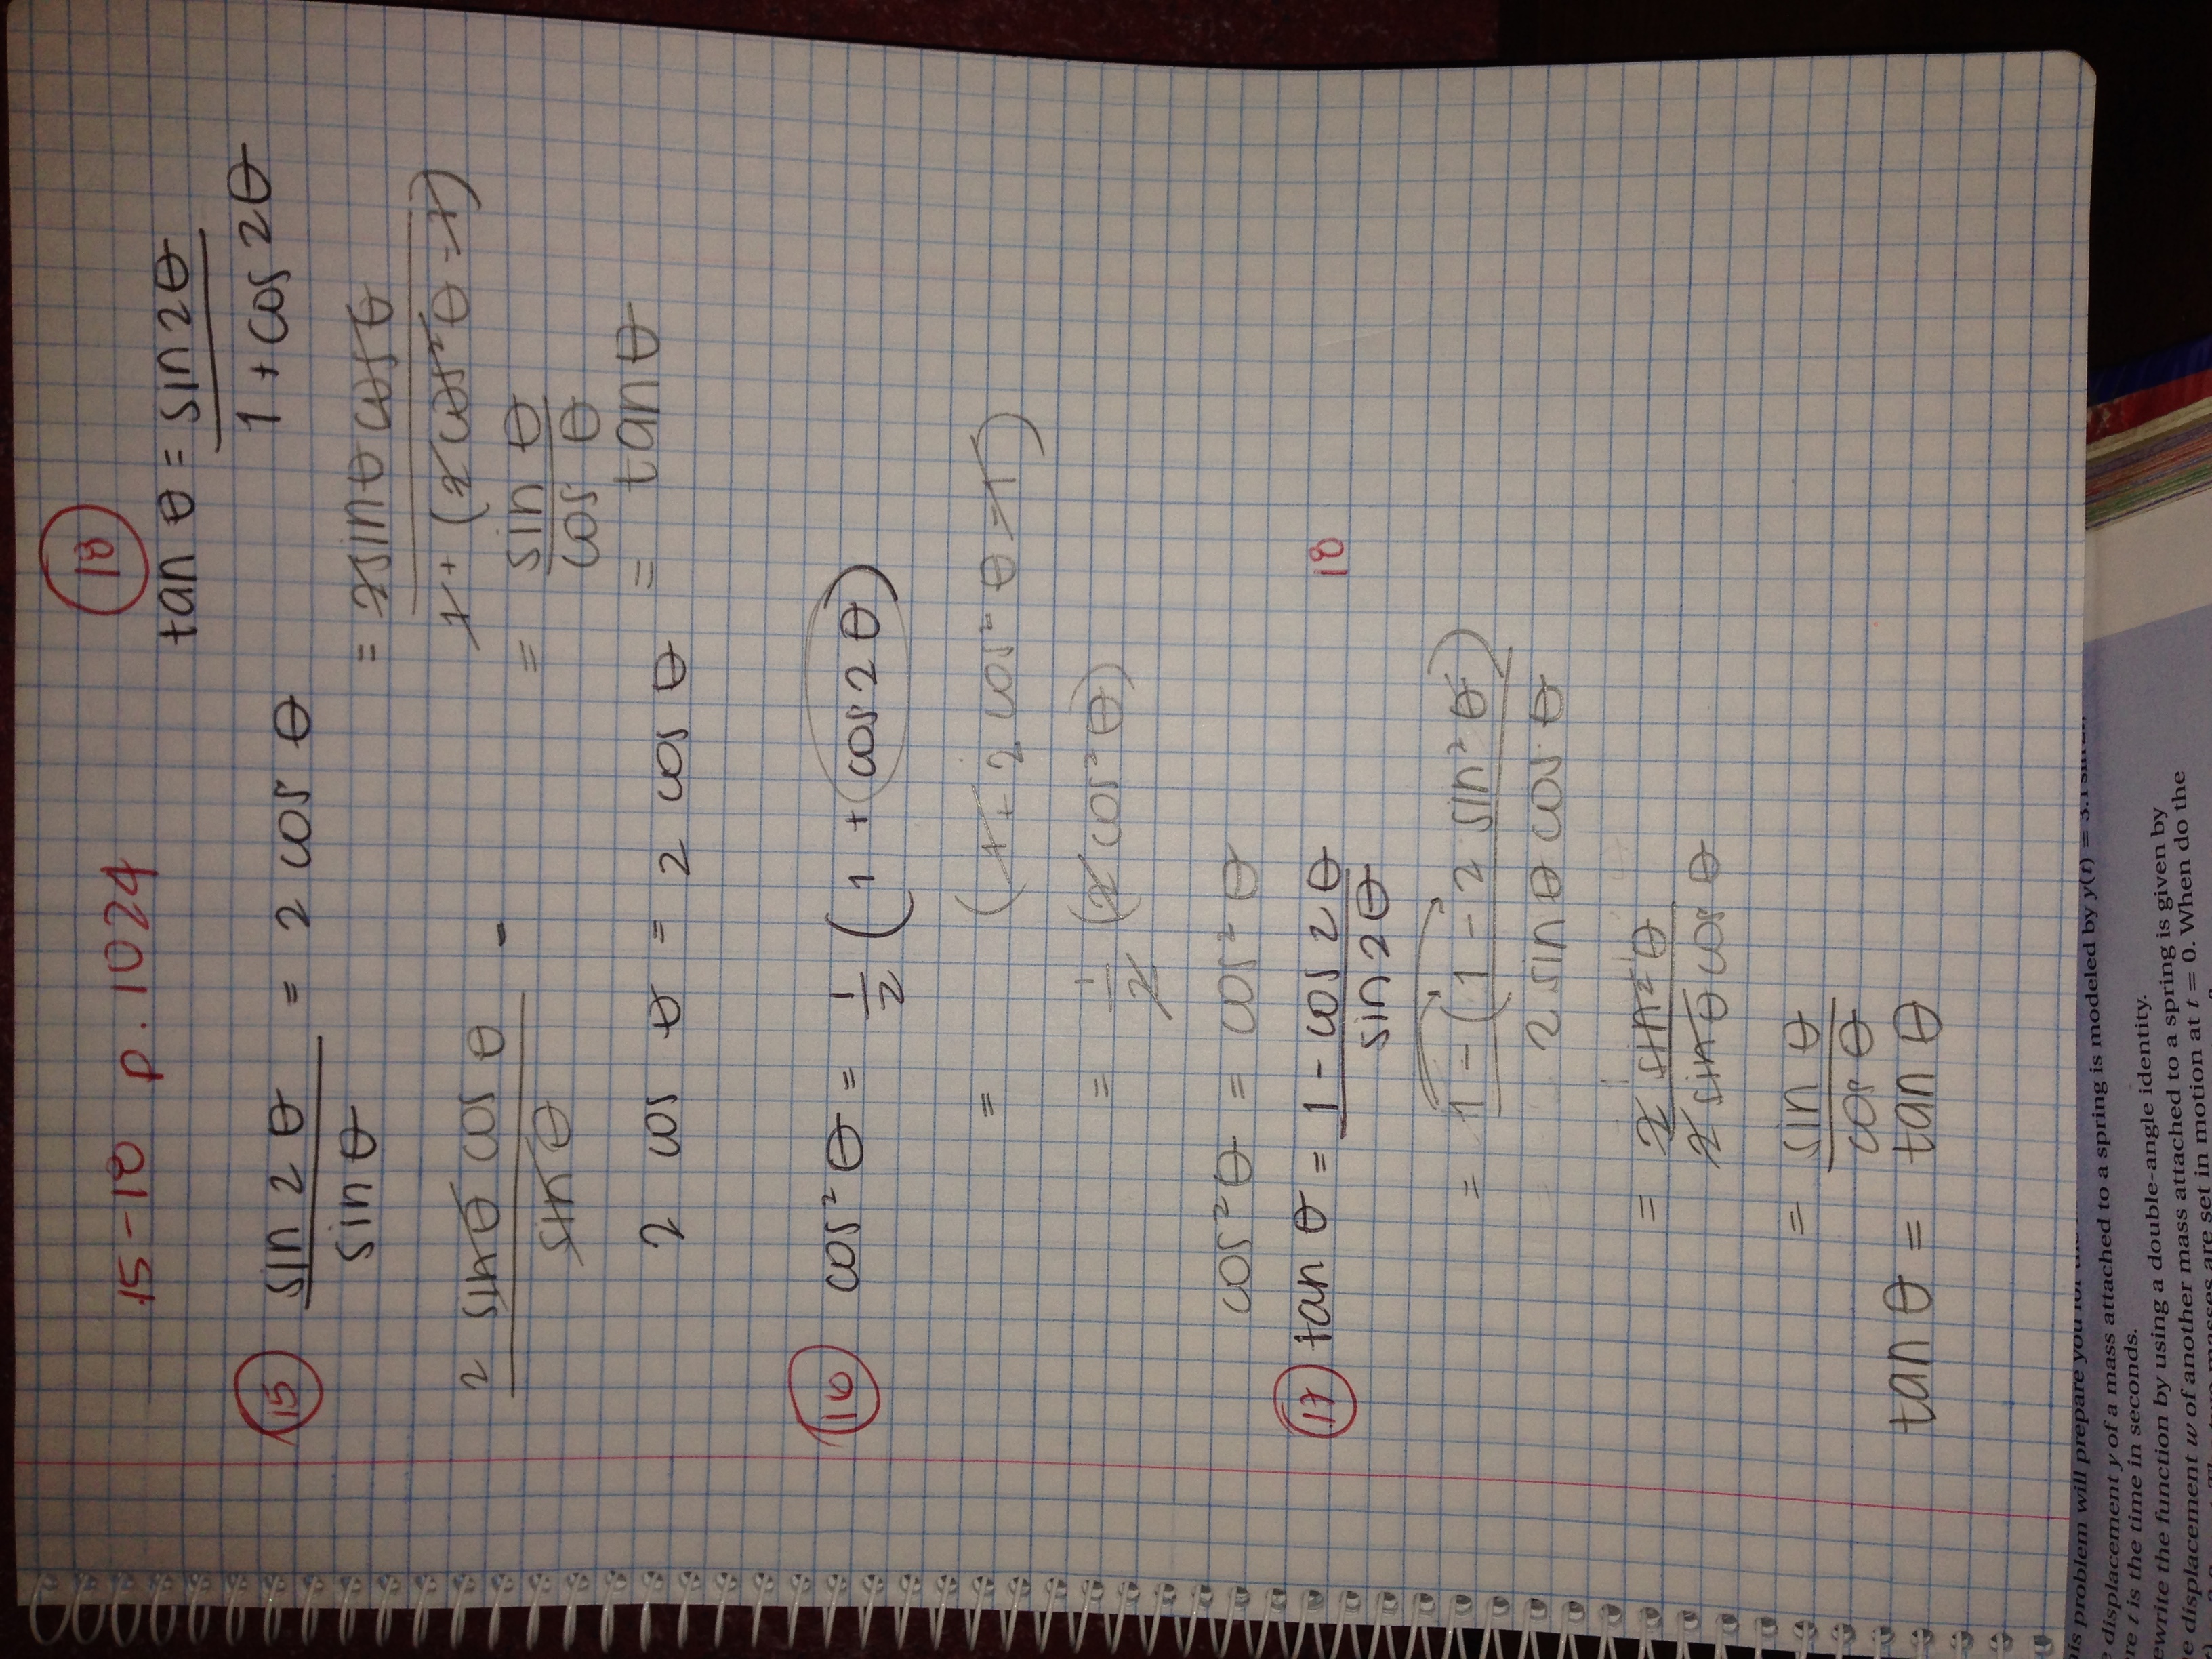 15-18 p. 1024
(15) sin 2θ / sin θ = 2 cos θ
2 sin θ cos θ / sin θ -
2 cos θ = 2 cos θ
(16) cos² θ = 1/2 (1 + cos 2θ)
= (1 + 2 cos² θ - 1)
= 1/2 (2 cos² θ)
cos² θ = cos² θ
(17) tan θ = 1 - cos 2θ / sin 2θ
18
= 1 - (1 - 2 sin² θ) / 2 sin θ cos θ
= 2 sin² θ / 2 sin θ cos θ
= sin θ / cos θ
tan θ = tan θ
(18)
tan θ = sin 2θ / 1 + cos 2θ
= 2 sin θ cos θ / 1 + (2 cos² θ - 1)
= sin θ / cos θ
= tan θ
is problem will prepare you
displacement y of a mass attached to a spring is modeled by y(t) = 3.1
re t is the time in seconds.
ewrite the function by using a double-angle identity.
e displacement w of another mass attached to a spring is given by
masses are set in motion at t = 0. When do the